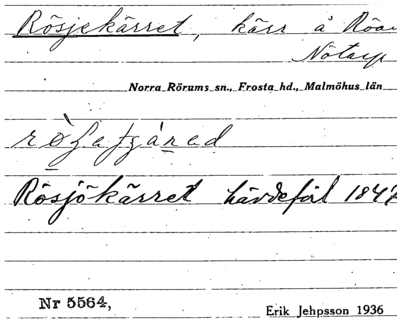 Rösjekärret, kärr å Röa
Notarp
Norra Rörums sn., Frosta hd., Malmöhus län
Rösjökärret hävdeförl 1847
Nr 5564,
Erik Jehpsson 1936